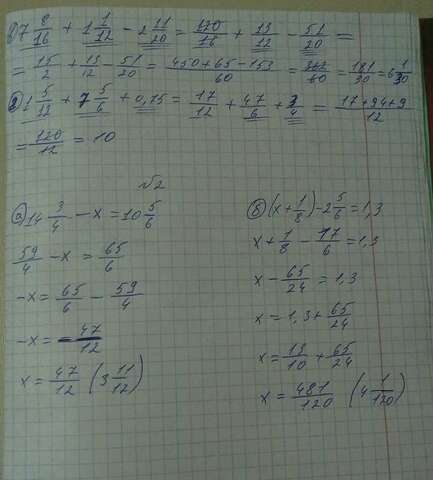 1) 7 8/16 + 1 1/12 - 2 11/20 = 120/16 + 13/12 - 51/20 =
= 15/2 + 13/12 - 51/20 = 450+65-153/60 = 362/60 = 181/30 = 6 1/30
2) 1 5/12 + 7 5/6 + 0,75 = 17/12 + 47/6 + 3/4 = 17+94+9/12
= 120/12 = 10
√2
а) 14 3/4 - x = 10 5/6
59/4 - x = 65/6
-x = 65/6 - 59/4
-x = - 47/12
x = 47/12 (3 11/12)
б) (x + 1/8) - 2 5/6 = 1,3
x + 1/8 - 17/6 = 1,3
x - 65/24 = 1,3
x = 1,3 + 65/24
x = 13/10 + 65/24
x = 481/120 (4 1/120)